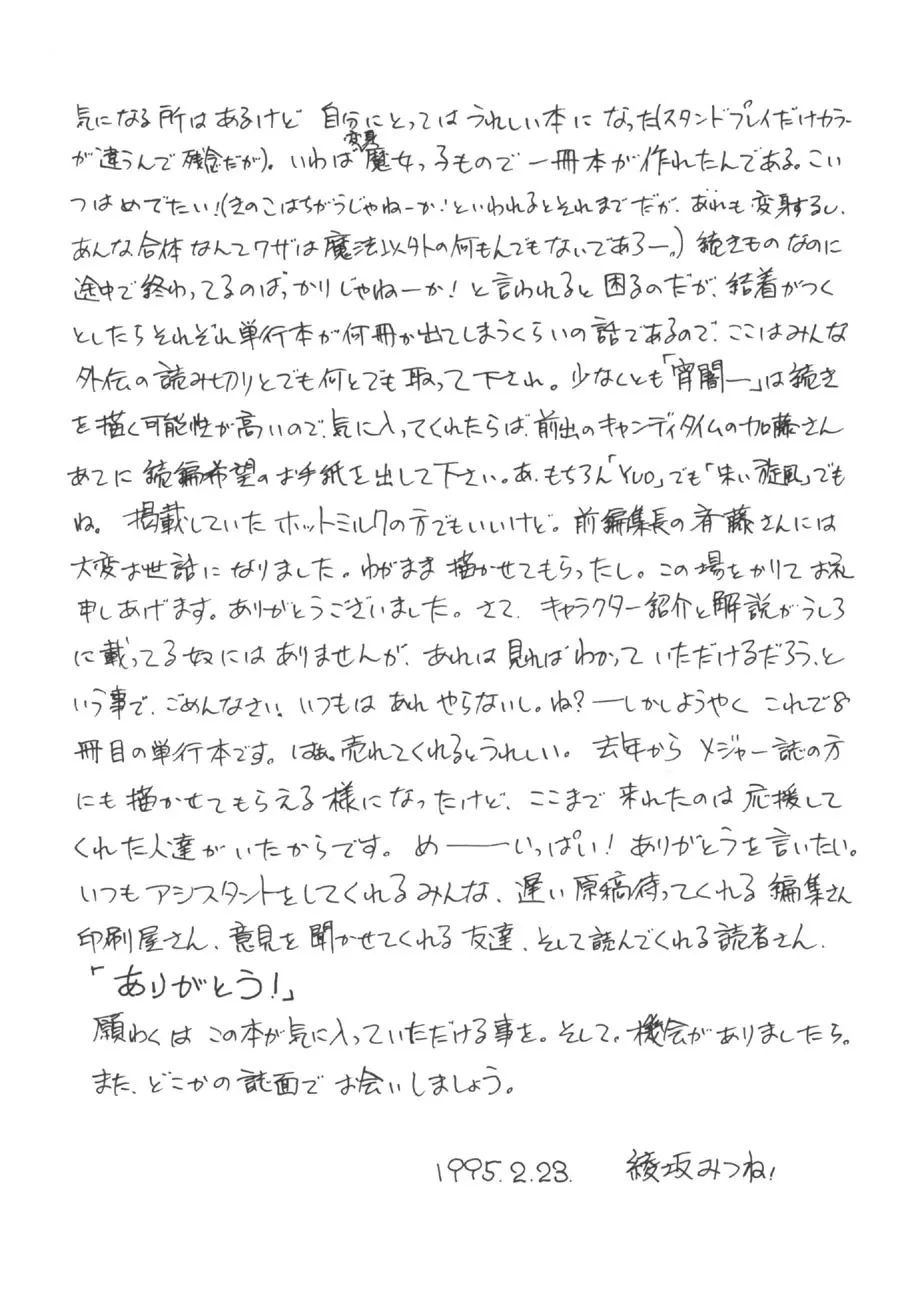 気になる所はあるけど 自分にとってはうれしい本になった(スタンドプレイだけカラー
が違うんで残念だが)。いわば変身魔女っ子もので一冊本が作れたんである。こい
つはめでたい!(きのこはちがうじゃねーか!といわれるとそれまでだが、あれも変身するし、
あんな合体なんてワザは魔法以外の何もんでもないであろー。)続きものなのに
途中で終わってるのばっかりじゃねーか!と言われると困るのだが、結着がつく
としたらそれぞれ単行本が何冊か出てしまうくらいの話であるので、ここはみんな
外伝の読み切りとでも何とでも取って下され。少なくとも「宵闇ー」は続き
を描く可能性が高いので、気に入ってくれたらば、前出のキャンディタイムの加藤さん
あてに続編希望のお手紙を出して下さい。あ、もちろん「YUO」でも「朱い旋風」でも
ね。掲載していたホットミルクの方でもいいけど。前編集長の斉藤さんには
大変お世話になりました。わがまま描かせてもらったし。この場をかりてお礼
申しあげます。ありがとうございました。さて、キャラクター紹介と解説がうしろ
に載ってる奴にはありませんが、あれは見ればわかっていただけるだろう、と
いう事で、ごめんなさい。いつもはあれやらないし。ね?ーしかしようやくこれで8
冊目の単行本です。はぁ。売れてくれるとうれしい。去年からメジャー誌の方
にも描かせてもらえる様になったけど、ここまで来れたのは応援して
くれた人達がいたからです。め───いっぱい!ありがとうを言いたい。
いつもアシスタントをしてくれるみんな、遅い原稿待ってくれる編集さん
印刷屋さん、意見を聞かせてくれる友達、そして読んでくれる読者さん、
「ありがとう!」
願わくはこの本が気に入っていただける事を。そして。機会がありましたら。
また、どこかの誌面でお会いしましょう。
1995.2.23. 綾坂みつね!